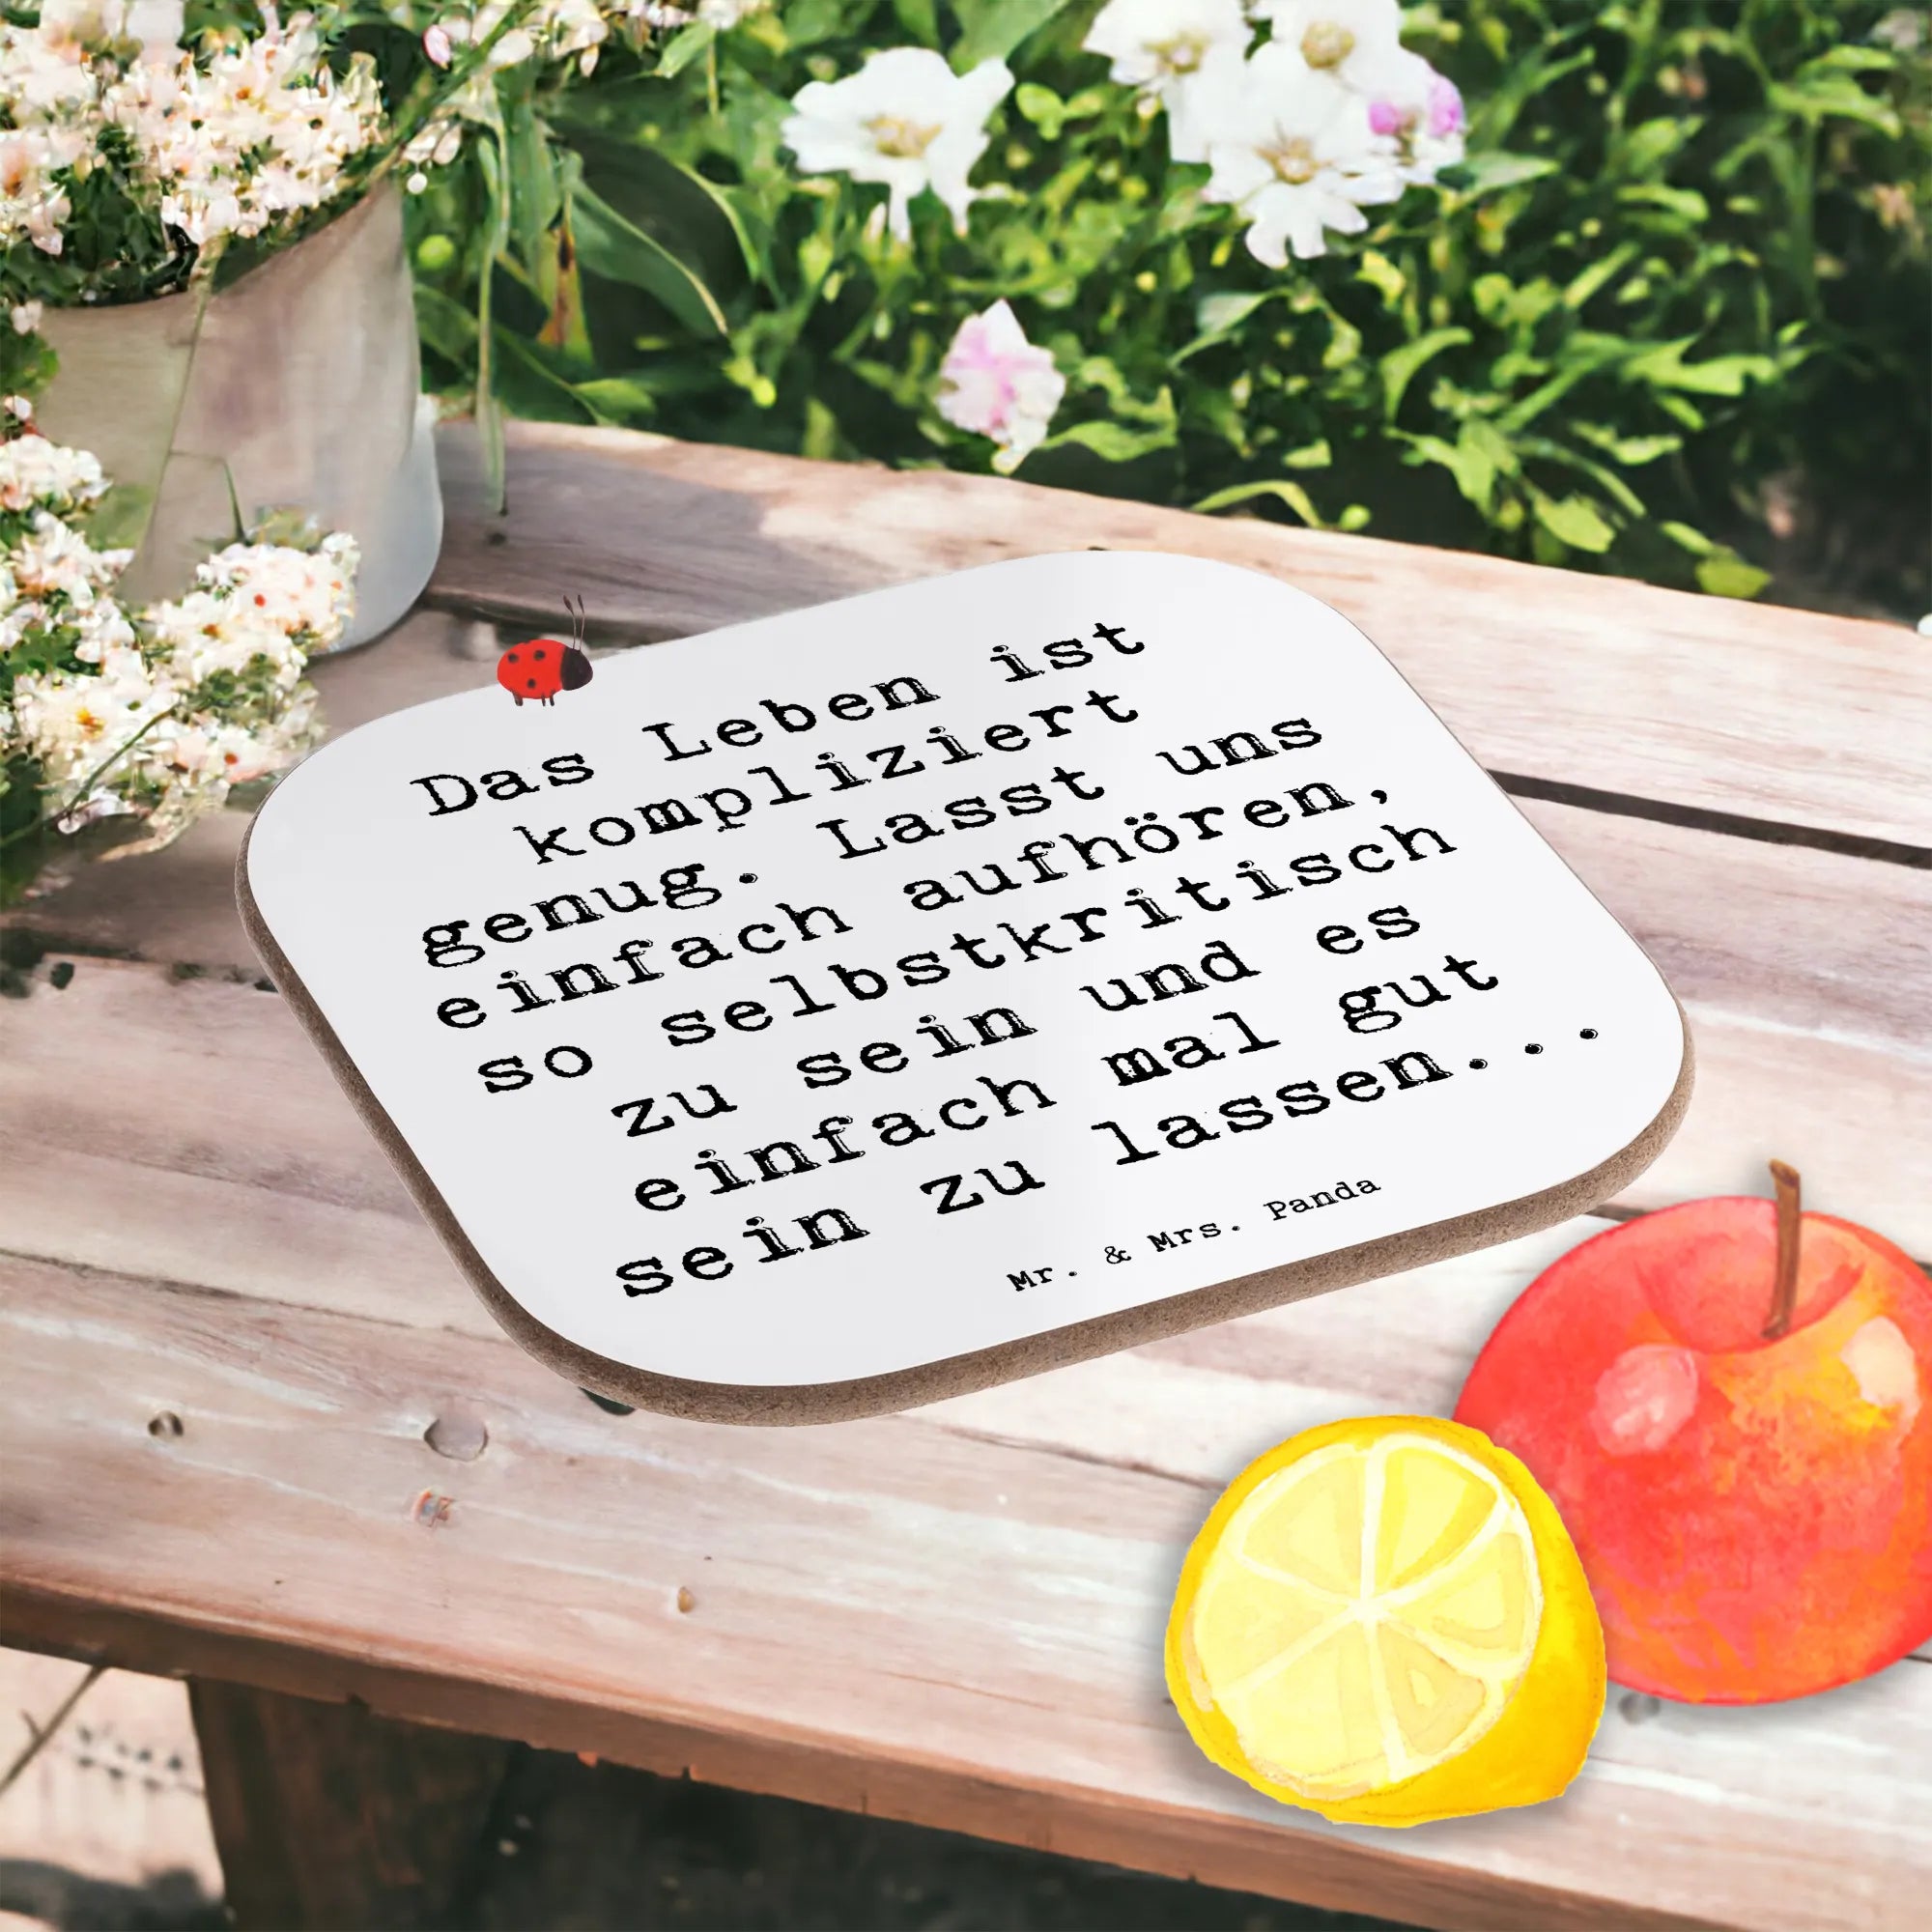 Das Leben ist
kompliziert
genug. Lasst uns
einfach aufhören,
so selbstkritisch
zu sein und es
einfach mal gut
sein zu lassen...
Mr. & Mrs. Panda